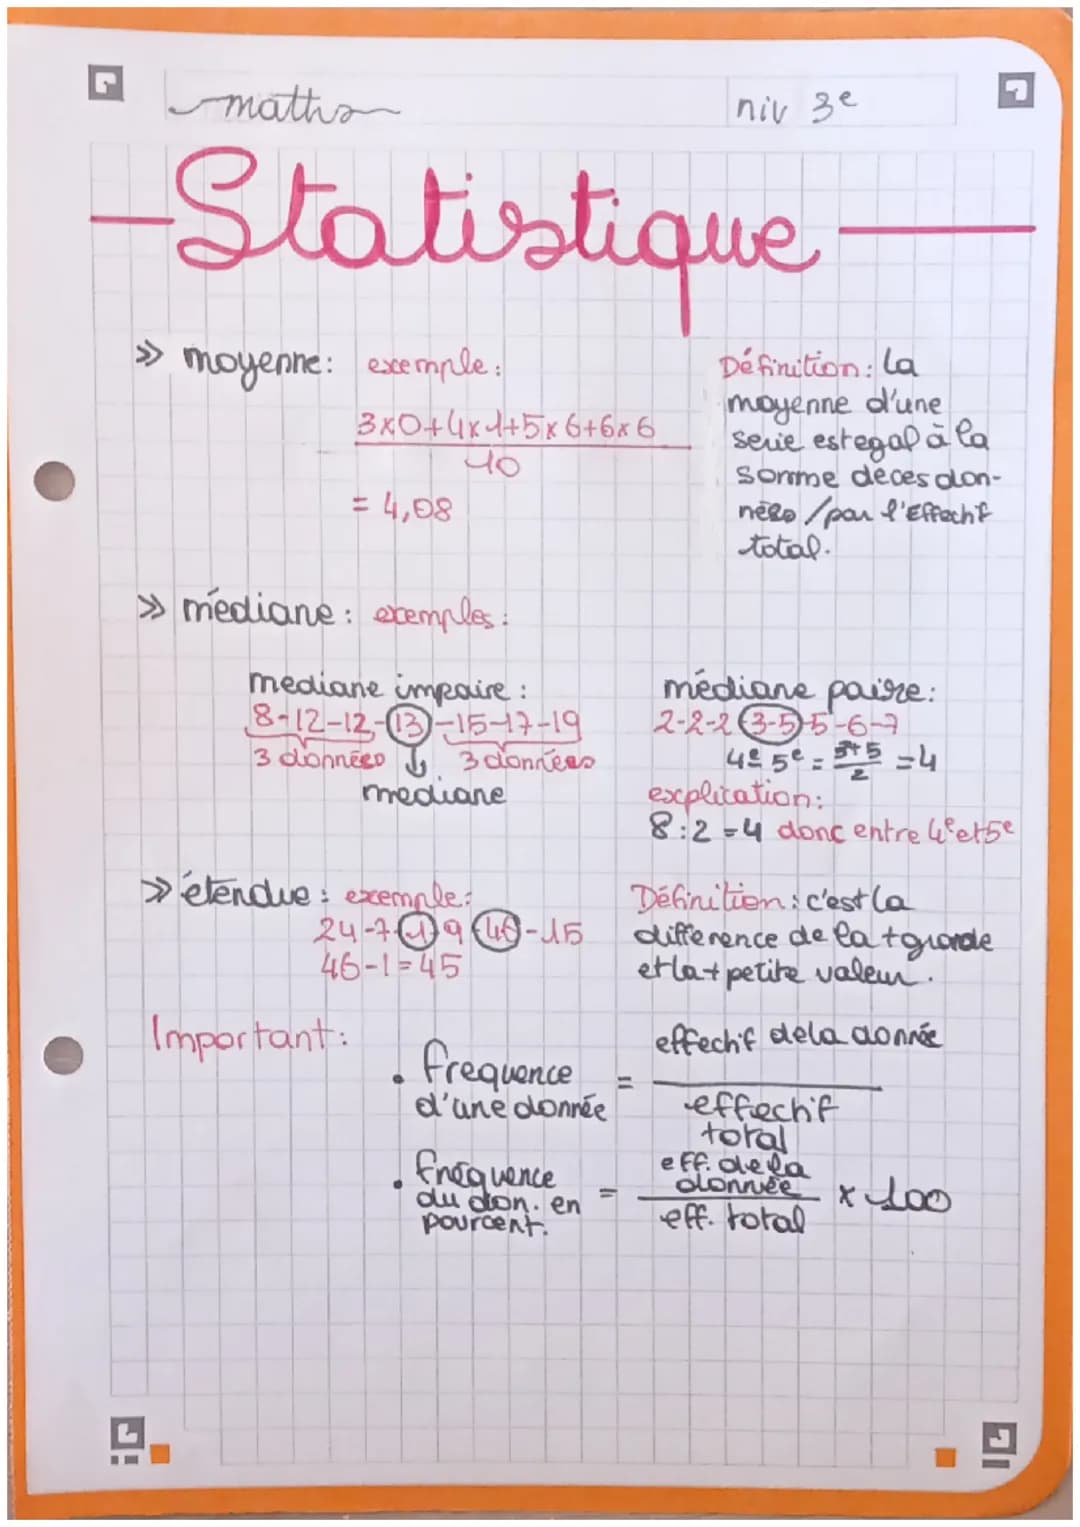 maths
niv 3e
Statistique
» moyenne: exemple:
3x0+4x1+5x6+6x6
10
= 4,08
Définition: la
moyenne d'une
serie est egal à la
somme de ces don-
nées / par l'Effectif
total.
» médiane: exemples:
mediane impaire:
8-12-12-13-15-17-19
3 données 3 données
mediane
médiane paire:
2-2-2-3-5-5-6-7
4e 5e = 3+5/2 = 4
explication:
8:2=4 donc entre 4e et 5e
» étendue: exemple:
24-7-1-9-46-15
46-1=45
Définition: c'est la
difference de la + grande
et la + petite valeur.
Important:
• frequence
d'une donnée
=
effectif de la donnée
effectif
total
• fréquence
du don. en
pourcent.
=
eff. de la
donnée
eff. total
x 100